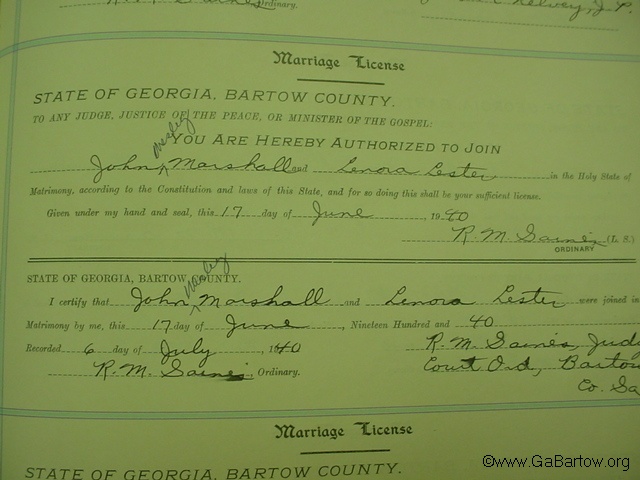 Ordinary.
J. P.
Marriage License
STATE OF GEORGIA, BARTOW COUNTY.
TO ANY JUDGE, JUSTICE OF THE PEACE, OR MINISTER OF THE GOSPEL:
YOU ARE HEREBY AUTHORIZED TO JOIN
Wesley
John ^ Marshall and Lenora Lester in the Holy State of
Matrimony, according to the Constitution and laws of this State, and for so doing this shall be your sufficient license.
Given under my hand and seal, this 17 day of June, 1940
R. M. Gaines (L. S.)
ORDINARY
STATE OF GEORGIA, BARTOW COUNTY.
Wesley
I certify that John ^ Marshall and Lenora Lester were joined in
Matrimony by me, this 17 day of June, Nineteen Hundred and 40
Recorded 6 day of July, 1940
R. M. Gaines, Judge
R. M. Gaines, Ordinary.
Court Ord, Bartow
Co. Ga
Marriage License
STATE OF GEORGIA, BARTOW COUNTY.
©www.GaBartow.org